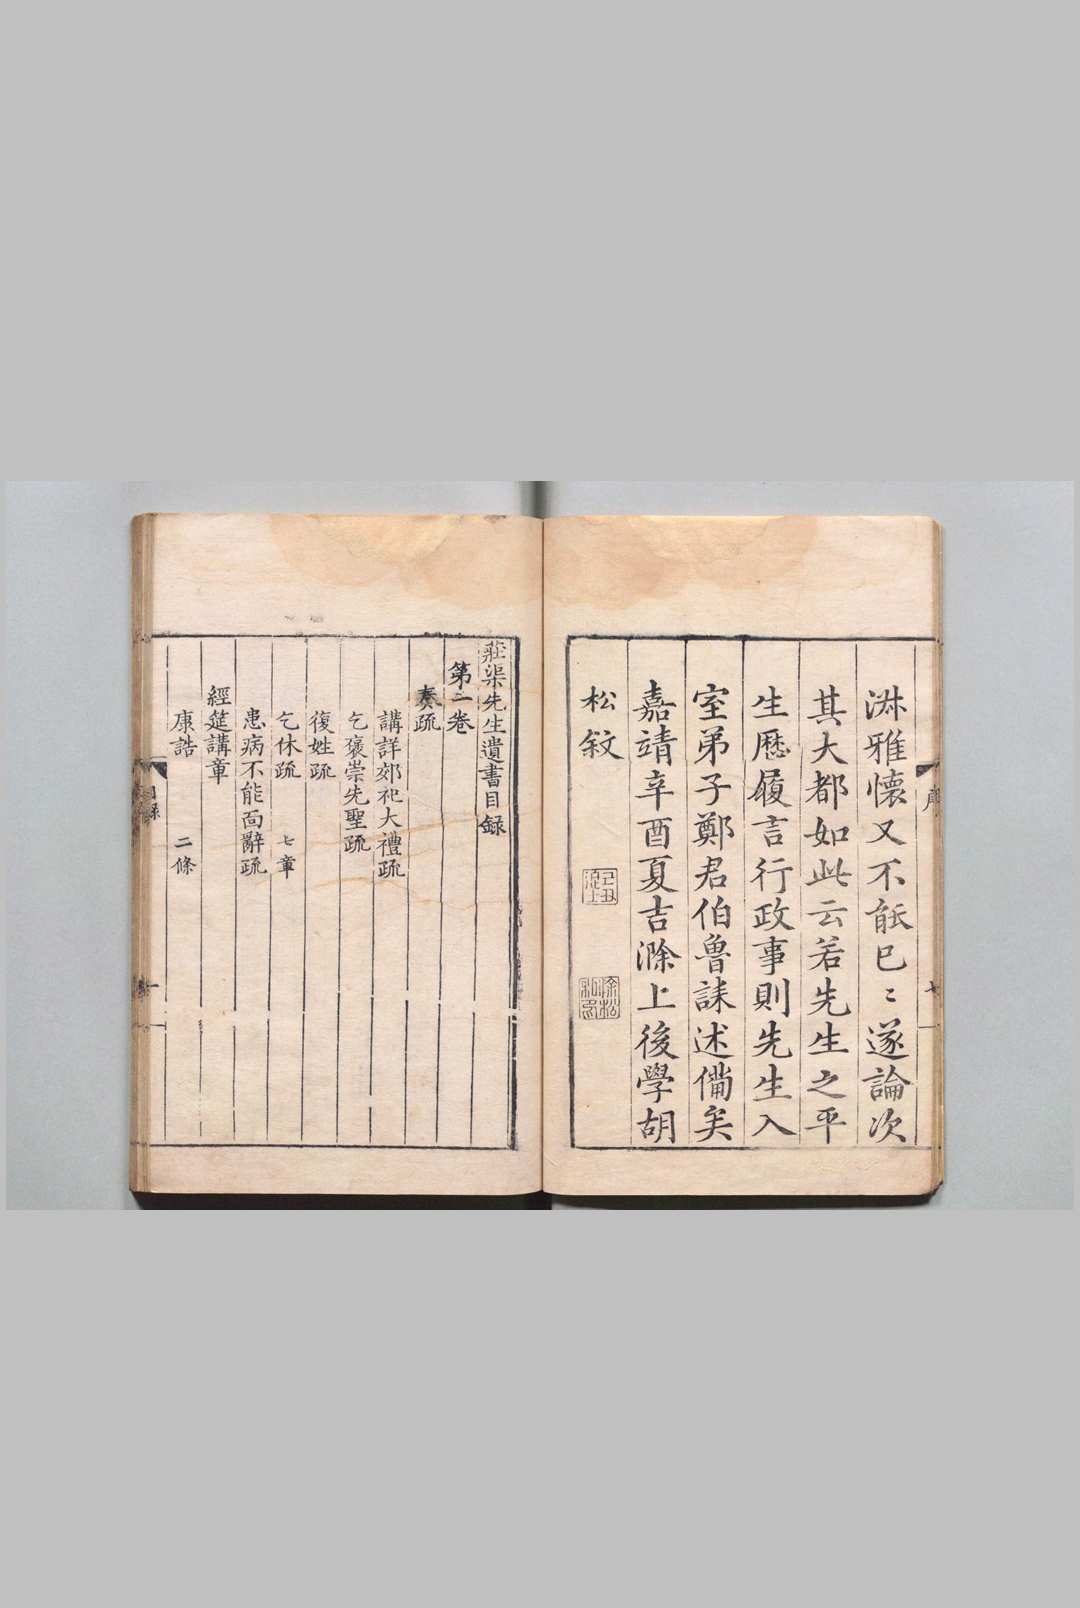 淋雅懷又不能已已遂論次
其大都如此云若先生之平
生歷履言行政事則先生入
室弟子鄭君伯魯誄述備矣
嘉靖辛酉夏吉滁上後學胡
松敘
莊渠先生遺書目録
第一卷
奏疏
講詳郊祀大禮疏
乞褒崇先聖疏
復姓疏
乞休疏 七章
患病不能面辭疏
經筵講章
康誥 二條
目録